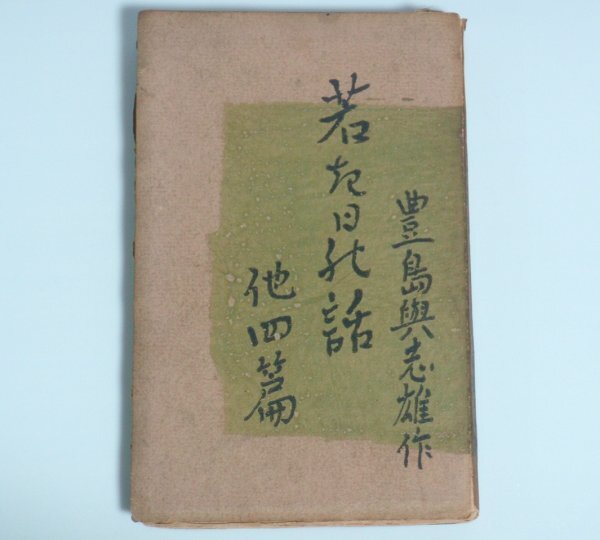 豊島與志雄作
若き日の話
他四篇